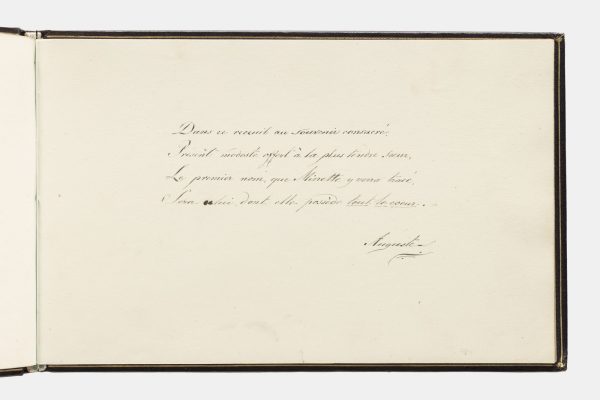 Dans ce recueil au souvenir consacré,
Présent modeste offert à la plus tendre sœur,
Le premier nom, que Minette y verra tracé,
Sera celui dont elle possède tout le coeur.
Auguste